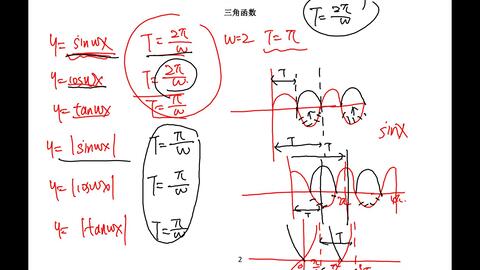 三角函数
T=2π/w
y=sinwx T=2π/w w=2 T=π
y=coswx T=2π/w
y=tanwx T=π/w
y=|sinwx| T=π/w
y=|coswx| T=π/w
y=|tanwx| T=π/w
T
sinx
T
T
T
T
2